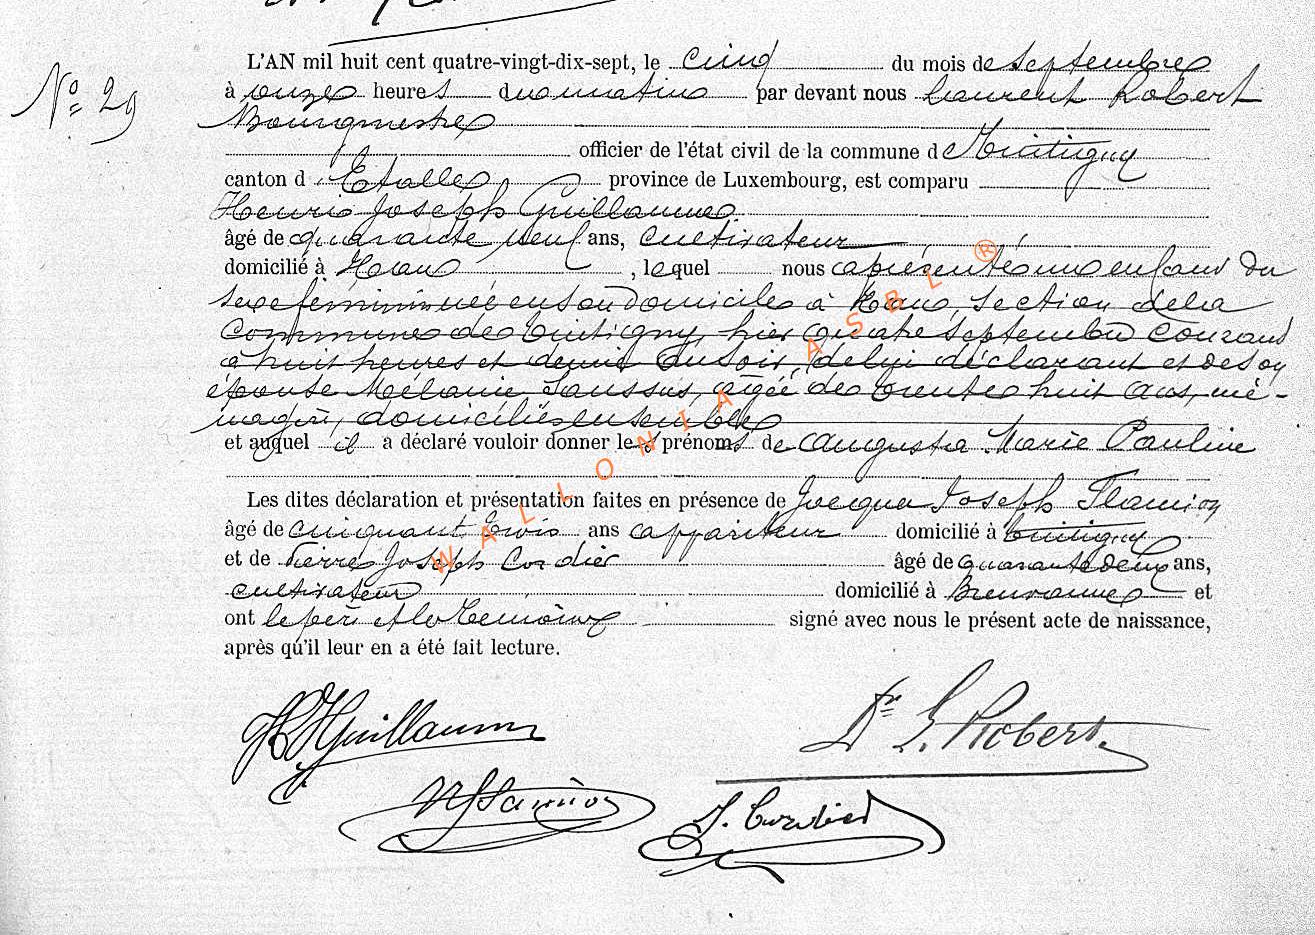 N° 29
L'AN mil huit cent quatre-vingt-dix-sept, le cinq du mois de septembre
à onze heures du matin par devant nous Laurent Robert
Bourgmestre
officier de l'état civil de la commune de Tintigny
canton d'Etalle province de Luxembourg, est comparu
Henri Joseph Guillaume
âgé de quarante neuf ans, cultivateur
domicilié à Han, lequel nous a présenté un enfant du
sexe féminin née en son domicile à Han, section de la
commune de Tintigny, hier quatre septembre courant
à huit heures et demie du soir, de lui déclarant et de son
épouse Mélanie Saussus, âgée de trente huit ans, mé-
nagère, domiciliés ensemble
et auquel il a déclaré vouloir donner les prénoms de Augusta Marie Pauline
Les dites déclaration et présentation faites en présence de Joseph Flamion
âgé de cinquante trois ans appariteur domicilié à Tintigny
et de Pierre Joseph Cordier âgé de quarante deux ans,
cultivateur domicilié à Breuvanne et
ont le père et les témoins signé avec nous le présent acte de naissance,
après qu'il leur en a été fait lecture.
HJGuillaume
Dr L. Robert
Flamion
J. Cordier
WALLONIA ASBL ®